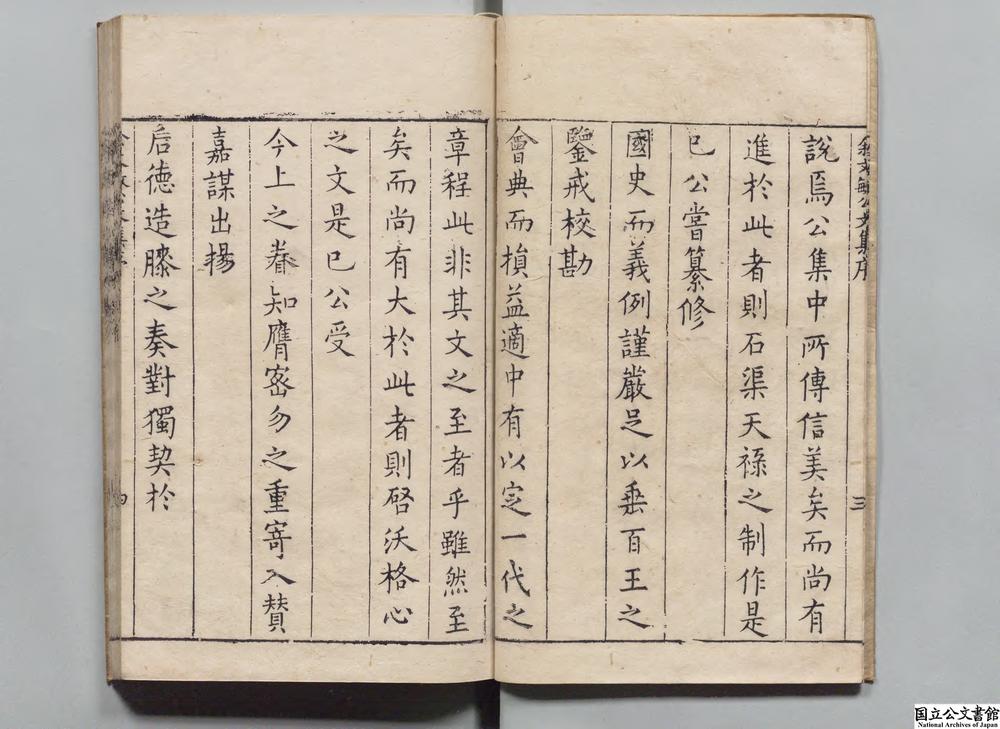 文集序
三
說焉公集中所傳信美矣而尚有
進於此者則石渠天祿之制作是
已公嘗纂修
國史而義例謹嚴足以垂百王之
鑒戒校勘
會典而損益適中有以定一代之
章程此非其文之至者乎雖然至
矣而尚有大於此者則啓沃格心
之文是已公受
今上之眷知膺密勿之重寄入賛
嘉謀出揚
后德造膝之奏對獨契於
四
国立公文書館
National Archives of Japan